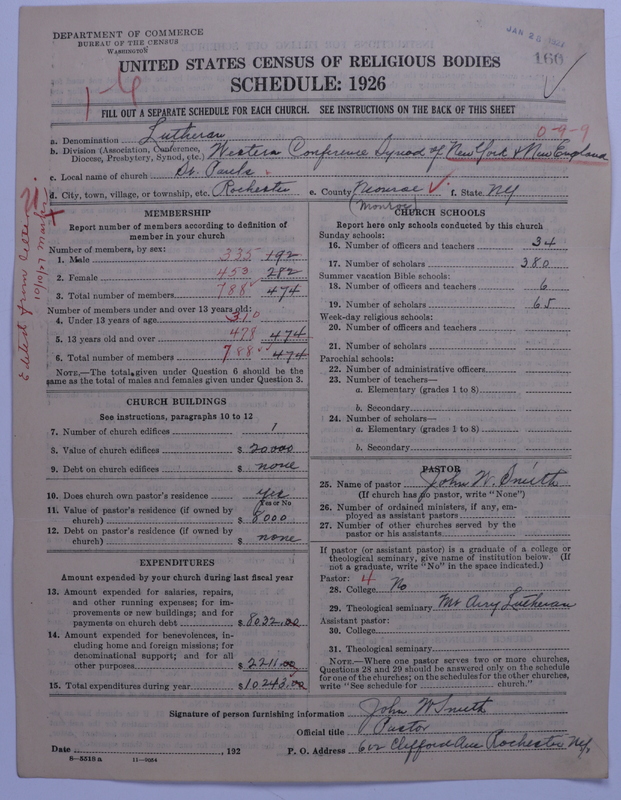 DEPARTMENT OF COMMERCE
BUREAU OF THE CENSUS
WASHINGTON
JAN 2
160
UNITED STATES CENSUS OF RELIGIOUS BODIES
SCHEDULE: 1926
FILL OUT A SEPARATE SCHEDULE FOR EACH CHURCH. SEE INSTRUCTIONS ON THE BACK OF THIS SHEET
0-9-9
a. Denomination Lutheran
b. Division (Association, Conference, Diocese, Presbytery, Synod, etc.) Western Conference Synod of New York & New England
c. Local name of church St. Pauls
d. City, town, village, or township, etc. Rochester e. County Monroe f. State NY
(Monroe)
Edited from letter
MEMBERSHIP
Report number of members according to definition of
member in your church
Number of members, by sex:
1. Male 335 192
2. Female 453 282
3. Total number of members 788 474
Number of members under and over 13 years old:
4. Under 13 years of age 310
5. 13 years old and over 478 474
6. Total number of members 788 474
NOTE.—The total given under Question 6 should be
same as the total of males and females given under Question 3.
CHURCH BUILDINGS
See instructions, paragraphs 10 to 12
7. Number of church edifices 1
8. Value of church edifices $ 20000
9. Debt on church edifices $ none
10. Does church own pastor's residence Yes
Yes or No
11. Value of pastor's residence (if owned by
church) $ 8000
12. Debt on pastor's residence (if owned by
church) $ none
EXPENDITURES
Amount expended by your church during last fiscal year
13. Amount expended for salaries, repairs,
and other running expenses; for im-
provements or new buildings; and for
payments on church debt $ 8032.00
14. Amount expended for benevolences, in-
cluding home and foreign missions; for
denominational support; and for all
other purposes $ 2211.00
15. Total expenditures during year $ 10243.00
CHURCH SCHOOLS
Report here only schools conducted by this church
Sunday schools:
16. Number of officers and teachers 34
17. Number of scholars 380
Summer vacation Bible schools:
18. Number of officers and teachers 6
19. Number of scholars 65
Week-day religious schools:
20. Number of officers and teachers
21. Number of scholars
Parochial schools:
22. Number of administrative officers
23. Number of teachers—
a. Elementary (grades 1 to 8)
b. Secondary
24. Number of scholars—
a. Elementary (grades 1 to 8)
b. Secondary
PASTOR
25. Name of pastor John W. Smith
(If church has no pastor, write "None")
26. Number of ordained ministers, if any, em-
ployed as assistant pastors
27. Number of other churches served by the
pastor or his assistants
If pastor (or assistant pastor) is a graduate of a college or
theological seminary, give name of institution below. (If
not a graduate, write "No" in the space indicated.)
Pastor: 4
28. College No
29. Theological seminary Mt Airy Lutheran
Assistant pastor:
30. College
31. Theological seminary
NOTE.—Where one pastor serves two or more churches,
Questions 28 and 29 should be answered only on the schedule
for one of the churches; on the schedules for the other churches,
write "See schedule for church."
Signature of person furnishing information John W Smith
Official title Pastor
Date , 192 P. O. Address 612 Clifford Ave Rochester NY,
8—5510 a 11—9084